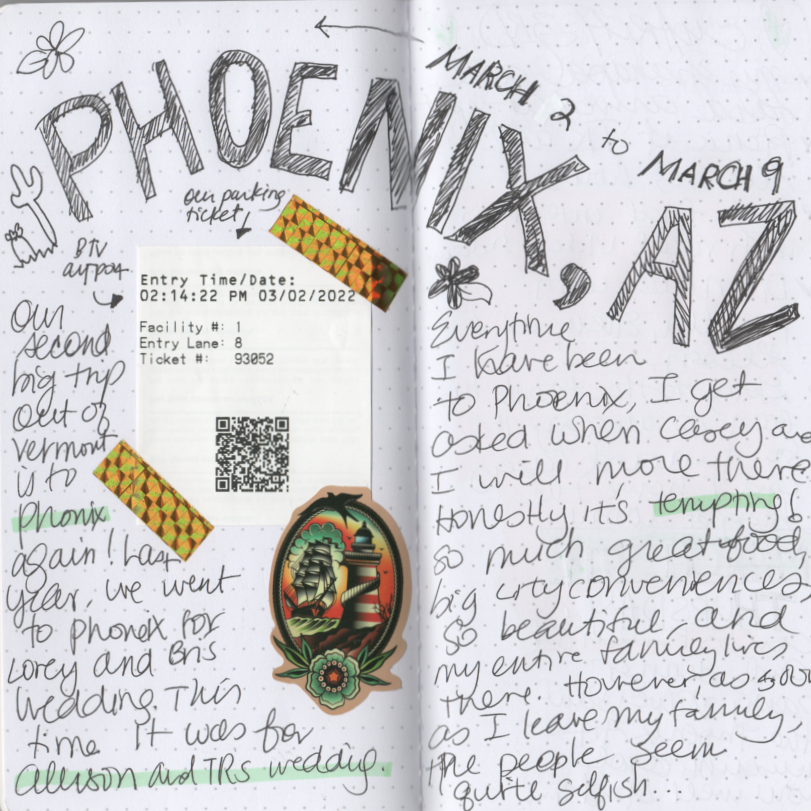 PHOENIX, AZ
MARCH 2
to
MARCH 9
our parking
ticket
BTV
airport
Entry Time/Date:
02:14:22 PM 03/02/2022
Facility #: 1
Entry Lane: 8
Ticket #: 93052
Our
second
big trip
out of
vermont
is to
phonix
again! Last
year, we went
to phonoix for
Lorey and Bris
wedding. This
time it was for
allison and TRs wedding.
Everytime
I have been
to Phoenix, I get
asked when Casey and
I will move there
Honestly it's tempting!
so much great food,
big city conveniences,
so beautiful, and
my entire family lives
there. However, as soon
as I leave my family,
the people seem
quite selfish...